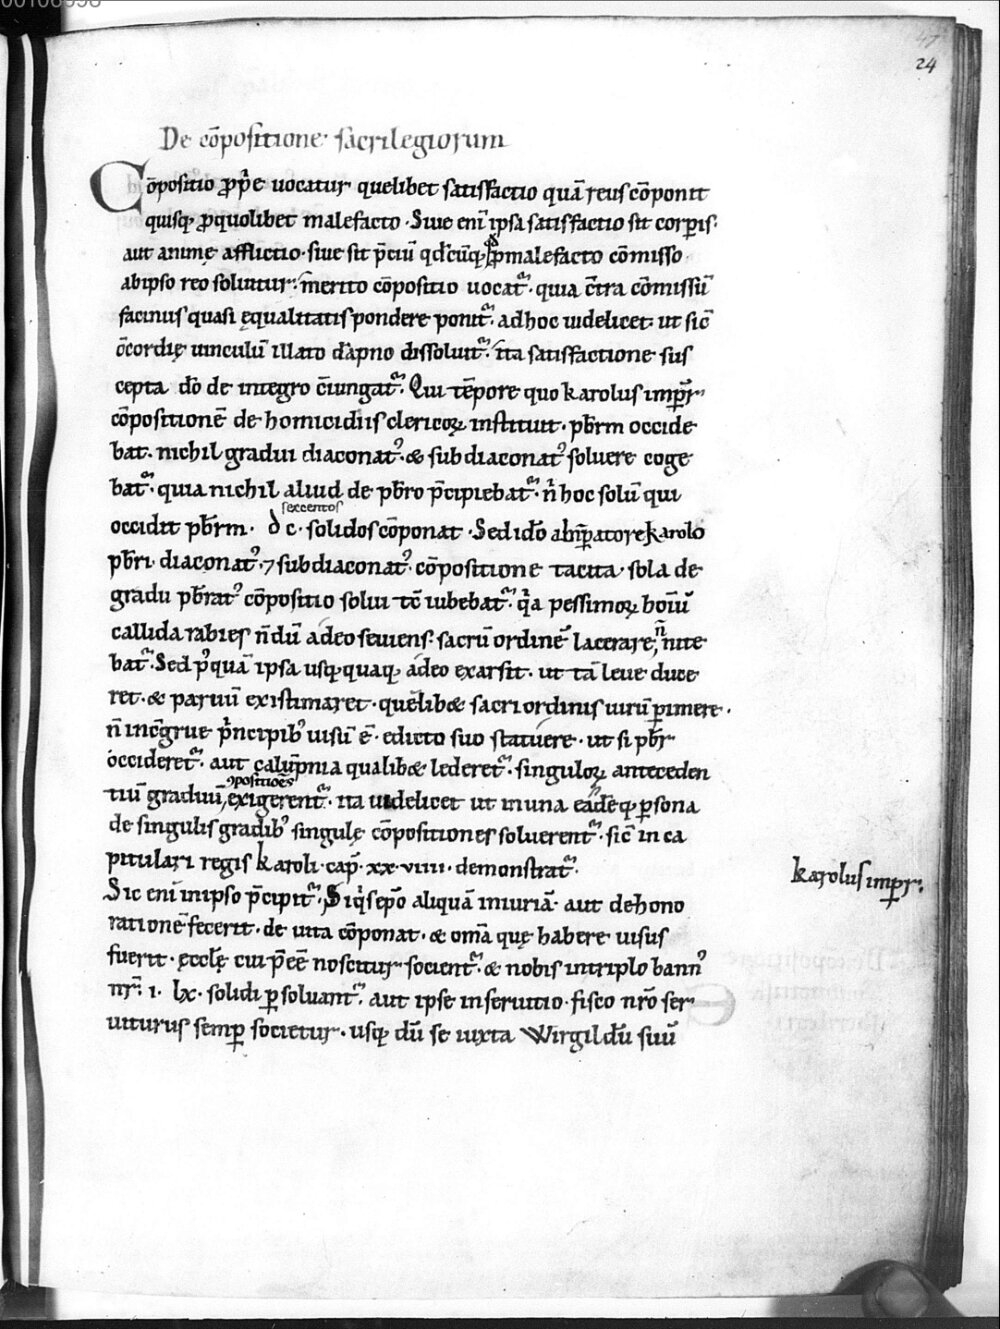 00106998
47
24
De cōpositione sacrilegiorum
Cōpositio ꝓp̄e uocatur quelibet satisfactio quā reus cōponit
quisq; ꝓ quolibet malefacto · Siue eni ̄ ipsa satisfactio sit corp̄is·
aut animę afflictio · siue sit p̄ciū qd̄cūq; ꝓ malefacto cōmisso
ab ipso reo soluitur · merito cōpositio uocat᷑ · quia c̄tra cōmissū
facinus quasi ęqualitatis pondere ponit᷑ · ad hoc uidelicet ut sic̄
c̄cordię uinculū illato dāpno dissoluit᷑ · ita satisfactione sus
cepta dō de integro c̄iungat᷑ · Qui tēpore quo karolus imp̄r
cōpositionē de homicidiis clericoꝝ instituit · pb̄rm occide
bat · nichil gradui diaconat᾽ · & subdiaconat᾽ soluere coge
bat᷑ · quia nichil aliud de pb̄ro p̄cipiebat᷑ · n̄ hoc solū qui
sexcentos
occidit pb̄rm · dc · solidos cōponat · Sed ido̅ ab imꝑatore karolo
pb̄ri · diaconat᾽ · ⁊ subdiaconat᾽ · cōpositione tacita · sola de
gradu pb̄rat᾽ cōpositio solui tc̄ iubebat᷑ · q̄a pessimoꝝ homiū
callida rabies n̄dū adeo seuiens · sacrū ordinē lacerare n̄ nite
bat᷑ · Sed p᾽quā ipsa usq;quaq; adeo exarsit · ut tā leue duce
ret · & paruū existimaret · quēlib& sacri ordinis uirū ꝑimere ·
n̄ inc̄grue p̄ncipib᾽ uisū ē · edicto suo statuere · ut si pb̄r
occideret᷑ · aut calūpnia qualib& lederet᷑ · singuloꝝ anteceden
ꝯpositiōes
tiū graduū, exigerent᷑ · ita uidelicet ut in una eadēq; ꝑsona
de singulis gradib᾽ singulę cōpositiones soluerent᷑ · sic̄ in ca
pitulari regis karoli · cap̄ · xx · viiii · demonstrat᷑ ·
Sic eni ̄ in ipso p̄cipit᷑ · Siq̄s ep̄o aliquā iniuriā · aut dehono
rationē fecerit · de uita cōponat · & om̄a quę habere uisus
fuerit · ęccl̄ę cui p̄eē noscitur socient᷑ · & nobis in triplo bann᾽
nr̄ · i · lx · solidi ꝑsoluant᷑ · aut ipse in seruitio · fisco nr̄o ser
uiturus semꝑ societur · usq; dū se iuxta Wirgildū suū
karolus imp̄r ·